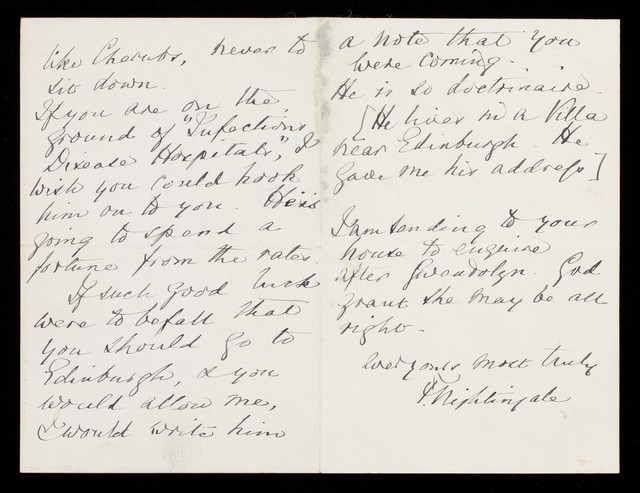 like Cherubs, never to
sit down.
If you are on the
ground of "Infectious
Disease Hospitals", I
wish you could hook
him on to you. He is
going to spend a
fortune from the rates.
If such good luck
were to befall that
you should go to
Edinburgh, & you
would allow me,
I would write him
a note that you
were coming.
He is so doctrinaire.
[He lives in a Villa
near Edinburgh. He
gave me his address]
I am sending to your
house to enquire
after Gwendolyn. God
grant she may be all
right.
ever yours most truly
F. Nightingale